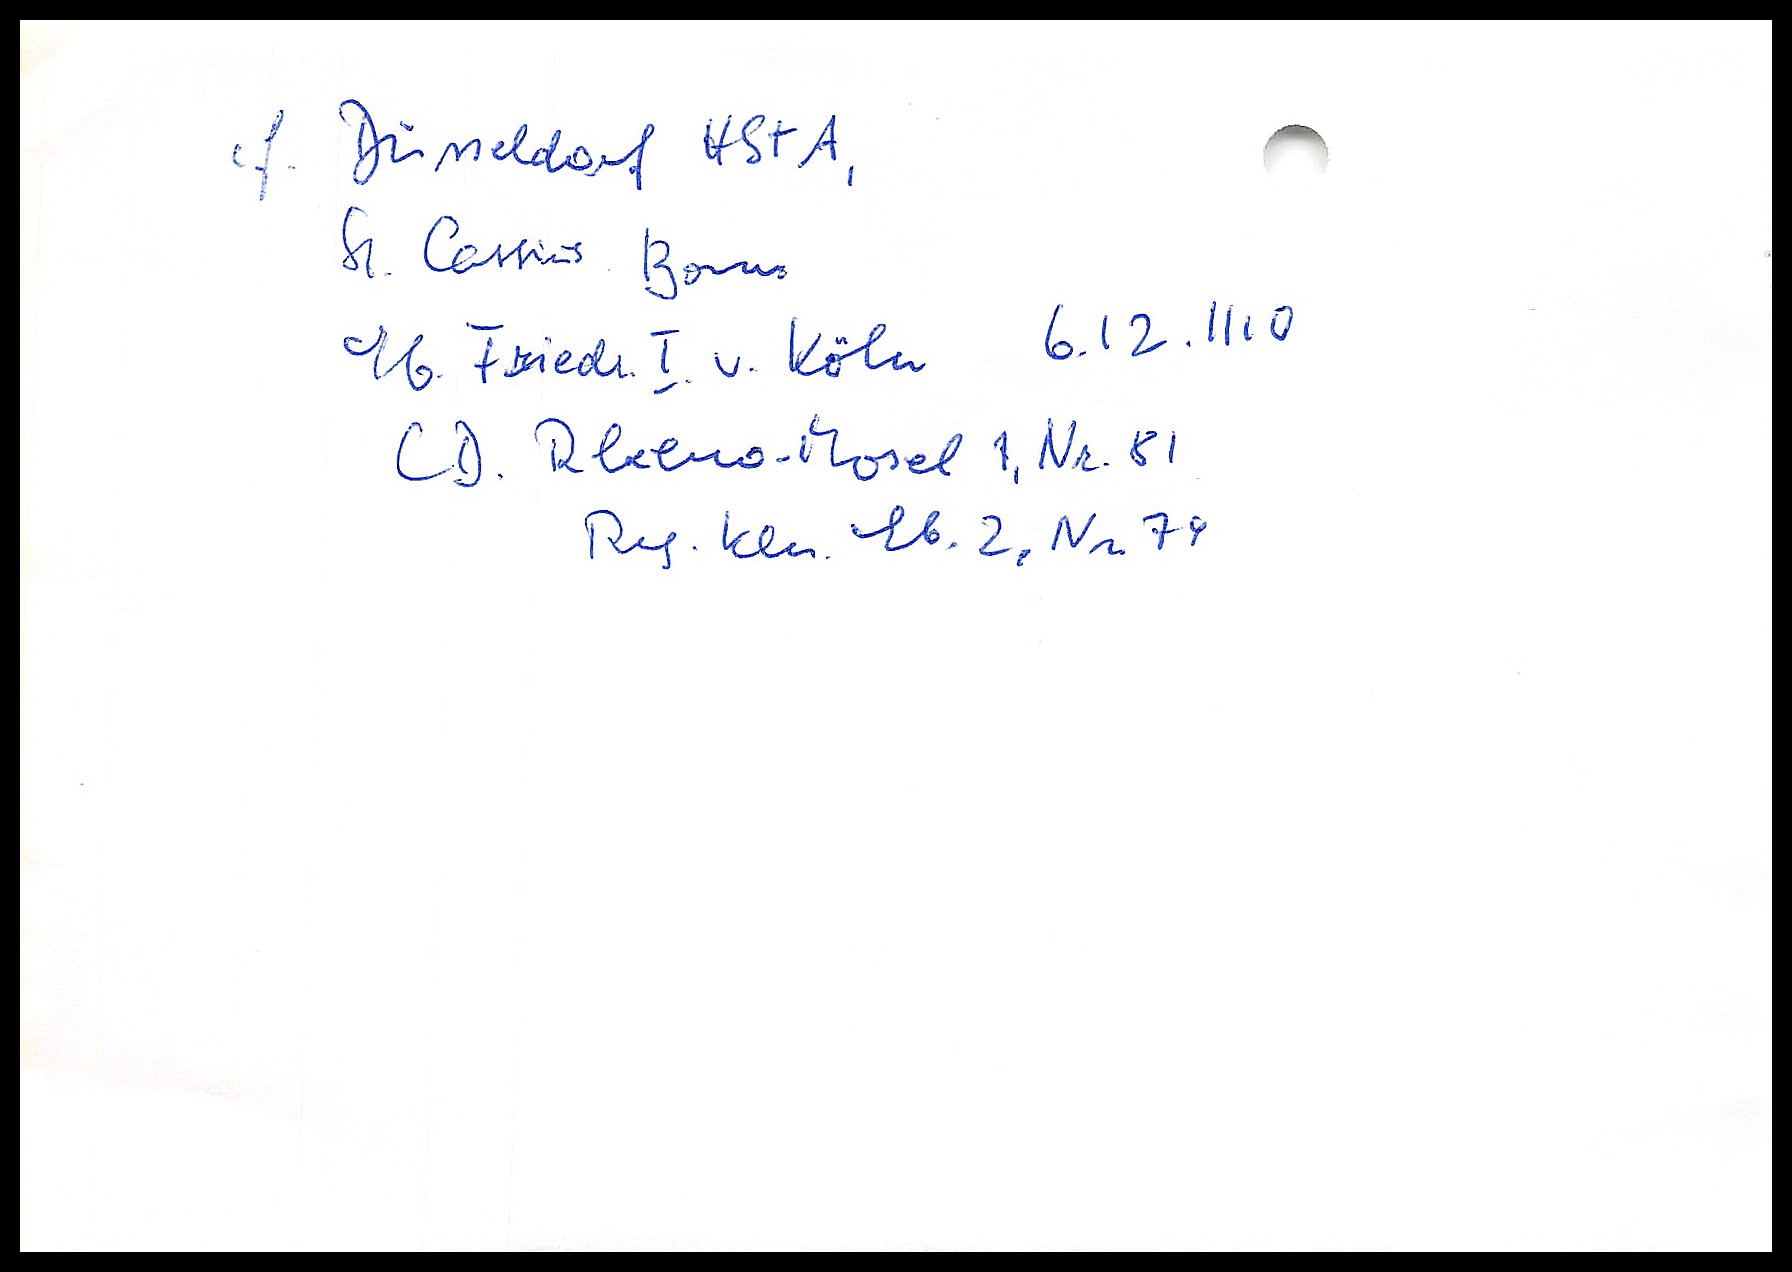 cf. Düsseldorf HStA,
St. Cassius Bonn
Eb. Friedr. I. v. Köln 6.12.1110
CD. Rheno-Mosel 1, Nr. 51
Reg. Köln. Eb. 2, Nr. 74